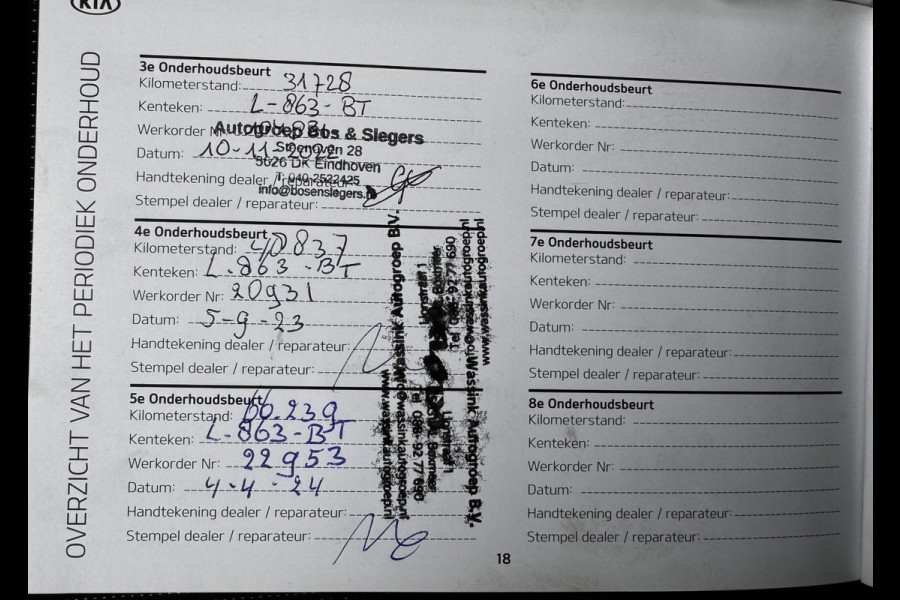 KIA
OVERZICHT VAN HET PERIODIEK ONDERHOUD
3e Onderhoudsbeurt
Kilometerstand: 31728
Kenteken: L-863-BT
Werkorder Nr:
Datum: 10-11-2022
Handtekening dealer / reparateur:
Stempel dealer / reparateur:
Autogroep Bos & Slegers
Steenoven 28
5626 DK Eindhoven
T. 040-2522425
info@bosenslegers.nl
4e Onderhoudsbeurt
Kilometerstand: 40837
Kenteken: L-863-BT
Werkorder Nr: 20931
Datum: 5-9-23
Handtekening dealer / reparateur:
Stempel dealer / reparateur:
Wassink Autogroep B.V.
Boxmeer
Tel. 088-92 77 690
www.wassinkautogroep.nl
5e Onderhoudsbeurt
Kilometerstand: 66.239
Kenteken: L-863-BT
Werkorder Nr: 22953
Datum: 4-4-24
Handtekening dealer / reparateur:
Stempel dealer / reparateur:
Wassink Autogroep B.V.
Boxmeer
Tel. 088-92 77 690
www.wassinkautogroep.nl
6e Onderhoudsbeurt
Kilometerstand:
Kenteken:
Werkorder Nr:
Datum:
Handtekening dealer / reparateur:
Stempel dealer / reparateur:
7e Onderhoudsbeurt
Kilometerstand:
Kenteken:
Werkorder Nr:
Datum:
Handtekening dealer / reparateur:
Stempel dealer / reparateur:
8e Onderhoudsbeurt
Kilometerstand:
Kenteken:
Werkorder Nr:
Datum:
Handtekening dealer / reparateur:
Stempel dealer / reparateur:
18